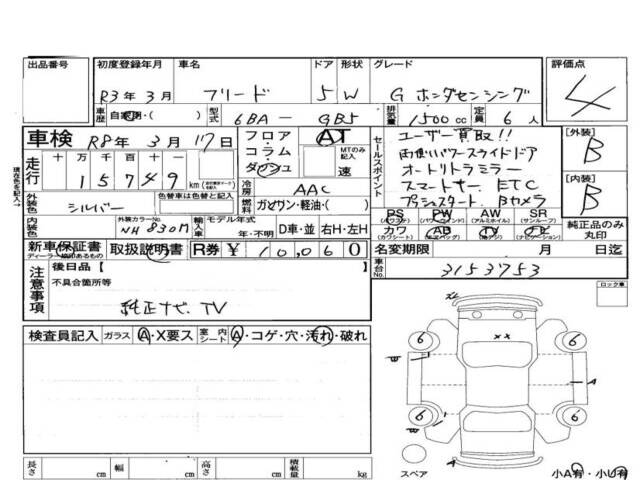 出品番号
初度登録年月 車名 ドア 形状 グレード 評価点
R3年 3月 フリード 5 W G ホンダセンシング 4
車歴 自家用・( ) 型式 6BA-GB5 排気量 1500cc 定員 6人
車検 R8年 3月 17日
フロア・コラム・ダッシュ AT MTのみ記入 速
セールスポイント
ユーザー買取!!
両側パワースライドドア
オートリトラミラー
スマートキー ETC
プッシュスタート、Bカメラ
[外装] B
[内装] B
現在色を記入→
走行 十 万 千 百 十 一
15749 km
外装色 色替車は色替と記入 シルバー
冷房 AAC
燃料 ガソリン・軽油・( )
内装色 外装カラーNo. NH 830M
輸入車 モデル年式 年・不明 D車・並 右H・左H
PS (パワステ) PW (パワーウインドウ) AW (アルミホイール) SR (サンルーフ)
カワ (カワシート) AB (エアバッグ) TV (ナビゲーション)
純正品のみ丸印
新車保証書 取扱説明書 R券 ¥ 10,060
名変期限 月 日迄
車台No. 3153753
注意事項
後日品【 】
不具合箇所等
純正ナビ、TV
ロック車
検査員記入 ガラス A・X要ス 室内シート A・コゲ・穴・汚れ・破れ
6 6
6 6
A
スペア
小A有・小U有
長さ cm 幅 cm 高さ cm 積載量 kg